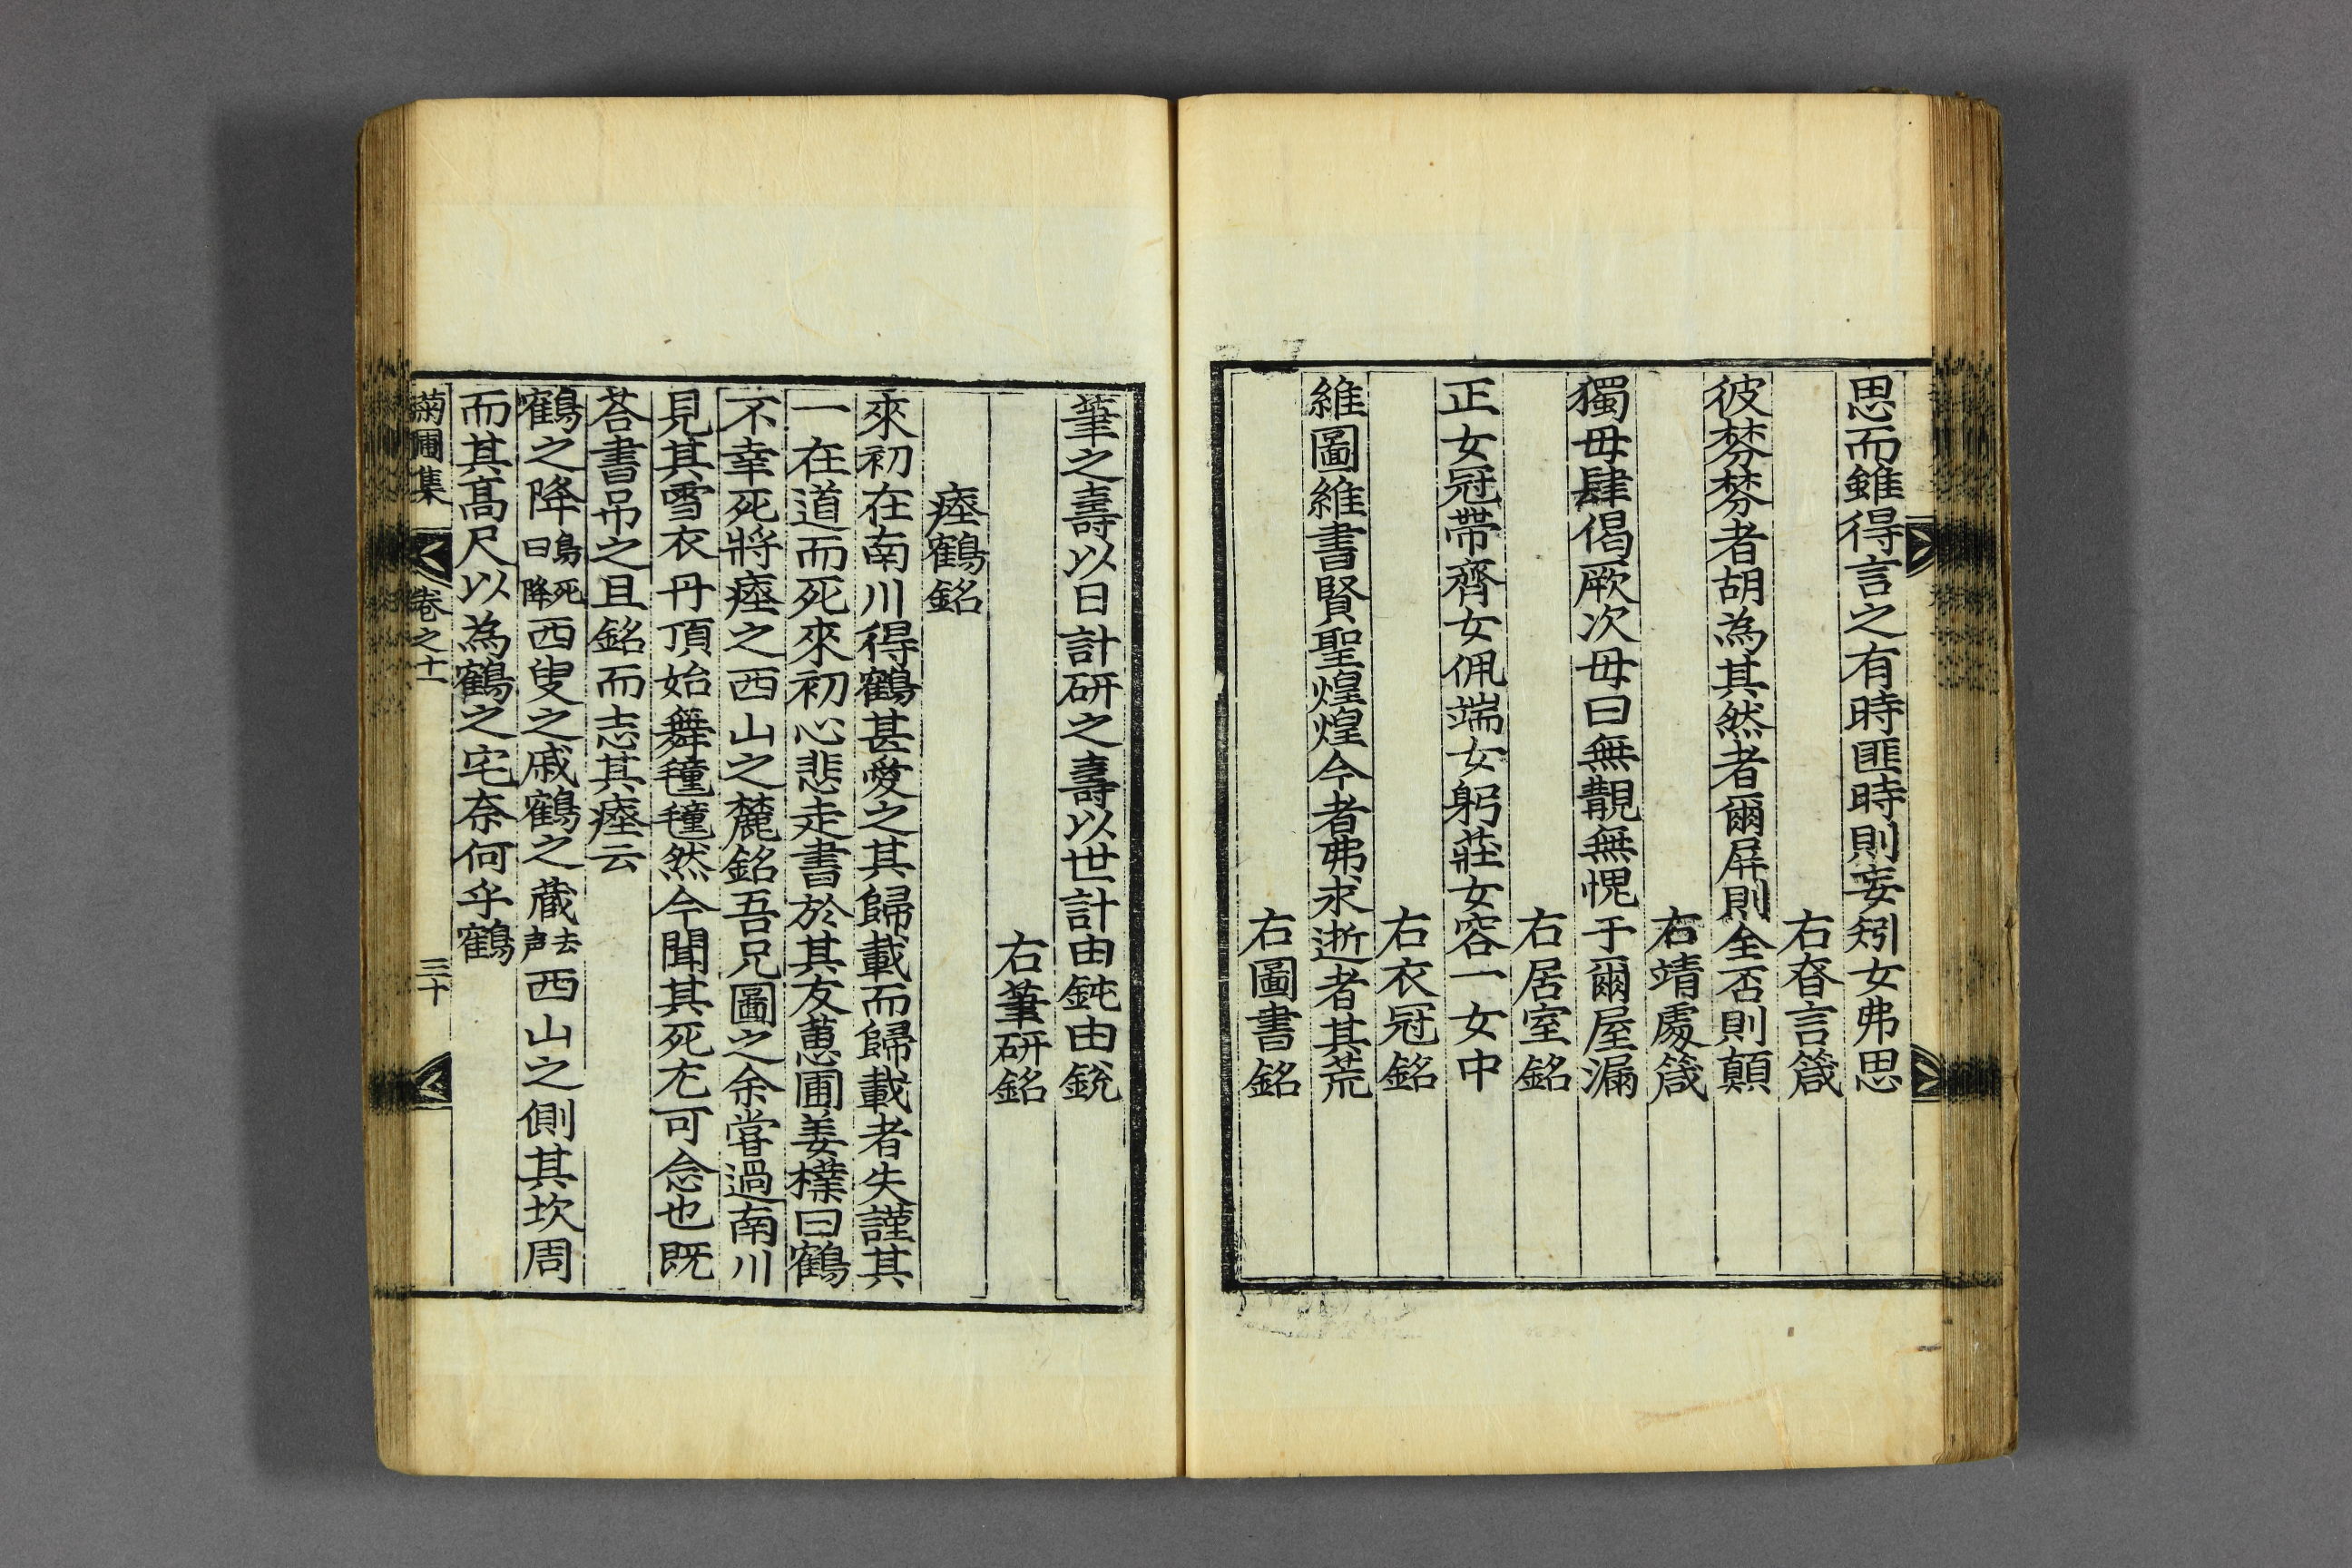 思而雖得言之有時匪時則妄矧女弗思
右昚言箴
彼棼棼者胡為其然者爾屏則全否則顛
右靖處箴
獨毋肆偈厥次毋曰無覩無愧于爾屋漏
右居室銘
正女冠帶齊女佩端女躬莊女容一女中
右衣冠銘
維圖維書賢聖煌煌今者弗求逝者其荒
右圖書銘
筆之壽以日計研之壽以世計由鈍由銳
右筆研銘
瘞鶴銘
來初在南川得鶴甚愛之其歸載而歸載者失謹其
一在道而死來初心悲走書於其友蕙圃姜檏曰鶴
不幸死將瘞之西山之麓銘吾兄圖之余嘗過南川
見其雪衣丹頂始舞氃氃然今聞其死尤可念也既
荅書吊之且銘而志其瘞云
鶴之降鳥死曰降西叟之戚鶴之藏去声西山之側其坎周
而其高尺以為鶴之宅奈何乎鶴
菊圃集 卷之十一 三十